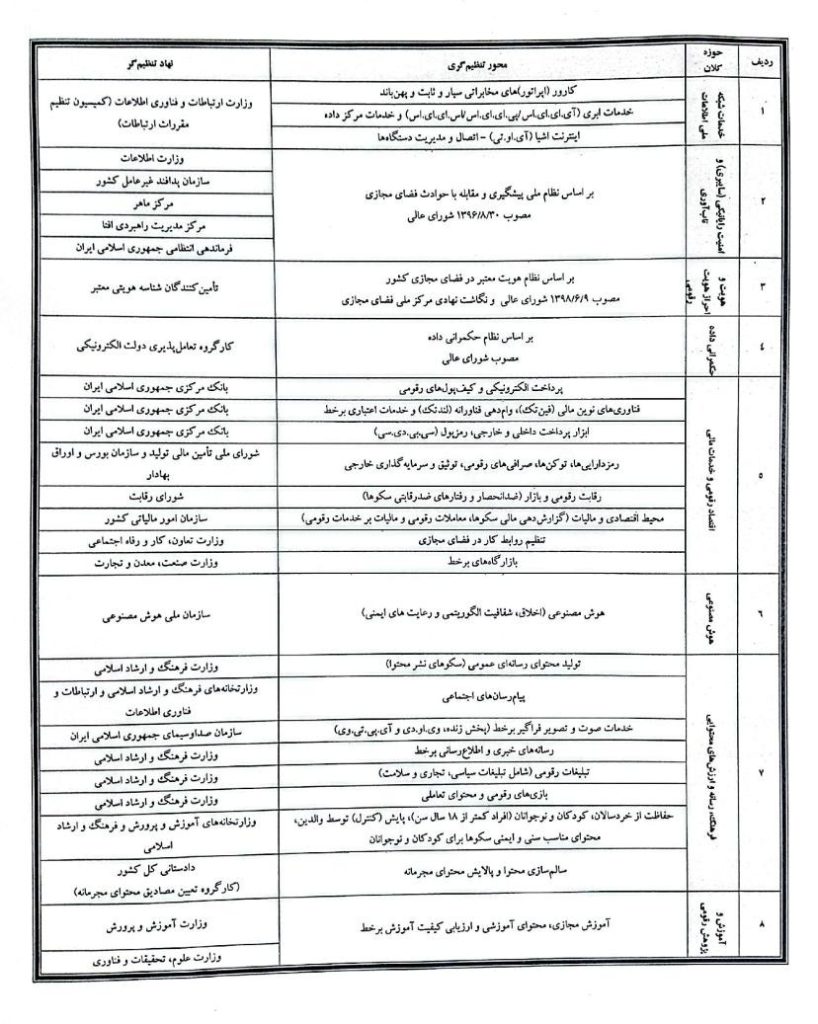 ردیف
حوزه
کلان
محور تنظیم‌گری
نهاد تنظیم‌گر
۱
خدمات شبکه
ملی اطلاعات
کارور (اپراتور)های مخابراتی سیار و ثابت و پهن‌باند
خدمات ابری (آی.ای.ای.اس/پی.ای.ای.اس/اس.ای.ای.اس) و خدمات مرکز داده
اینترنت اشیا (آی.او.تی) – اتصال و مدیریت دستگاه‌ها
وزارت ارتباطات و فناوری اطلاعات (کمیسیون تنظیم
مقررات ارتباطات)
۲
امنیت رایانیکی (سایبری) و
تاب‌آوری
بر اساس نظام ملی پیشگیری و مقابله با حوادث فضای مجازی
مصوب ۱۳۹۶/۸/۳۰ شورای عالی
وزارت اطلاعات
سازمان پدافند غیرعامل کشور
مرکز ماهر
مرکز مدیریت راهبردی افتا
فرماندهی انتظامی جمهوری اسلامی ایران
۳
هویت و
احراز هویت
رقومی
بر اساس نظام هویت معتبر در فضای مجازی کشور
مصوب ۱۳۹۸/۶/۹ شورای عالی و نگاشت نهادی مرکز ملی فضای مجازی
تأمین‌کنندگان شناسه هویتی معتبر
٤
حکمرانی داده
بر اساس نظام حکمرانی داده
مصوب شورای عالی
کارگروه تعامل‌پذیری دولت الکترونیکی
٥
اقتصاد رقومی و خدمات مالی
پرداخت الکترونیکی و کیف‌پول‌های رقومی
بانک مرکزی جمهوری اسلامی ایران
فناوری‌های نوین مالی (فین‌تک)، وام‌دهی فناورانه (لندتک) و خدمات اعتباری برخط
بانک مرکزی جمهوری اسلامی ایران
ابزار پرداخت داخلی و خارجی، رمزپول (سی.بی.دی.سی)
بانک مرکزی جمهوری اسلامی ایران
رمزدارایی‌ها، توکن‌ها، صرافی‌های رقومی، توثیق و سرمایه‌گذاری خارجی
شورای ملی تأمین مالی تولید و سازمان بورس و اوراق
بهادار
رقابت رقومی و بازار (ضدانحصار و رفتارهای ضدرقابتی سکوها)
شورای رقابت
محیط اقتصادی و مالیات (گزارش‌دهی مالی سکوها، معاملات رقومی و مالیات بر خدمات رقومی)
سازمان امور مالیاتی کشور
تنظیم روابط کار در فضای مجازی
وزارت تعاون، کار و رفاه اجتماعی
بازارگاه‌های برخط
وزارت صنعت، معدن و تجارت
٦
هوش مصنوعی
هوش مصنوعی (اخلاق، شفافیت الگوریتمی و رعایت های ایمنی)
سازمان ملی هوش مصنوعی
۷
فرهنگ، رسانه و ارزش‌های محتوایی
تولید محتوای رسانه‌ای عمومی (سکوهای نشر محتوا)
وزارت فرهنگ و ارشاد اسلامی
پیام‌رسان‌های اجتماعی
وزارتخانه‌های فرهنگ و ارشاد اسلامی و ارتباطات و
فناوری اطلاعات
خدمات صوت و تصویر فراگیر برخط (پخش زنده، وی.او.دی و آی.پی.تی.وی)
سازمان صداوسیمای جمهوری اسلامی ایران
رسانه‌های خبری و اطلاع‌رسانی برخط
وزارت فرهنگ و ارشاد اسلامی
تبلیغات رقومی (شامل تبلیغات سیاسی، تجاری و سلامت)
وزارت فرهنگ و ارشاد اسلامی
بازی‌های رقومی و محتوای تعاملی
وزارت فرهنگ و ارشاد اسلامی
حفاظت از خردسالان، کودکان و نوجوانان (افراد کمتر از ۱۸ سال سن)، پایش (کنترل) توسط والدین،
محتوای مناسب سنی و ایمنی سکوها برای کودکان و نوجوانان
وزارتخانه‌های آموزش و پرورش و فرهنگ و ارشاد
اسلامی
سالم‌سازی محتوا و پالایش محتوای مجرمانه
دادستانی کل کشور
(کارگروه تعیین مصادیق محتوای مجرمانه)
۸
آموزش و
پژوهش رقومی
آموزش مجازی، محتوای آموزشی و ارزیابی کیفیت آموزش برخط
وزارت آموزش و پرورش
وزارت علوم، تحقیقات و فناوری